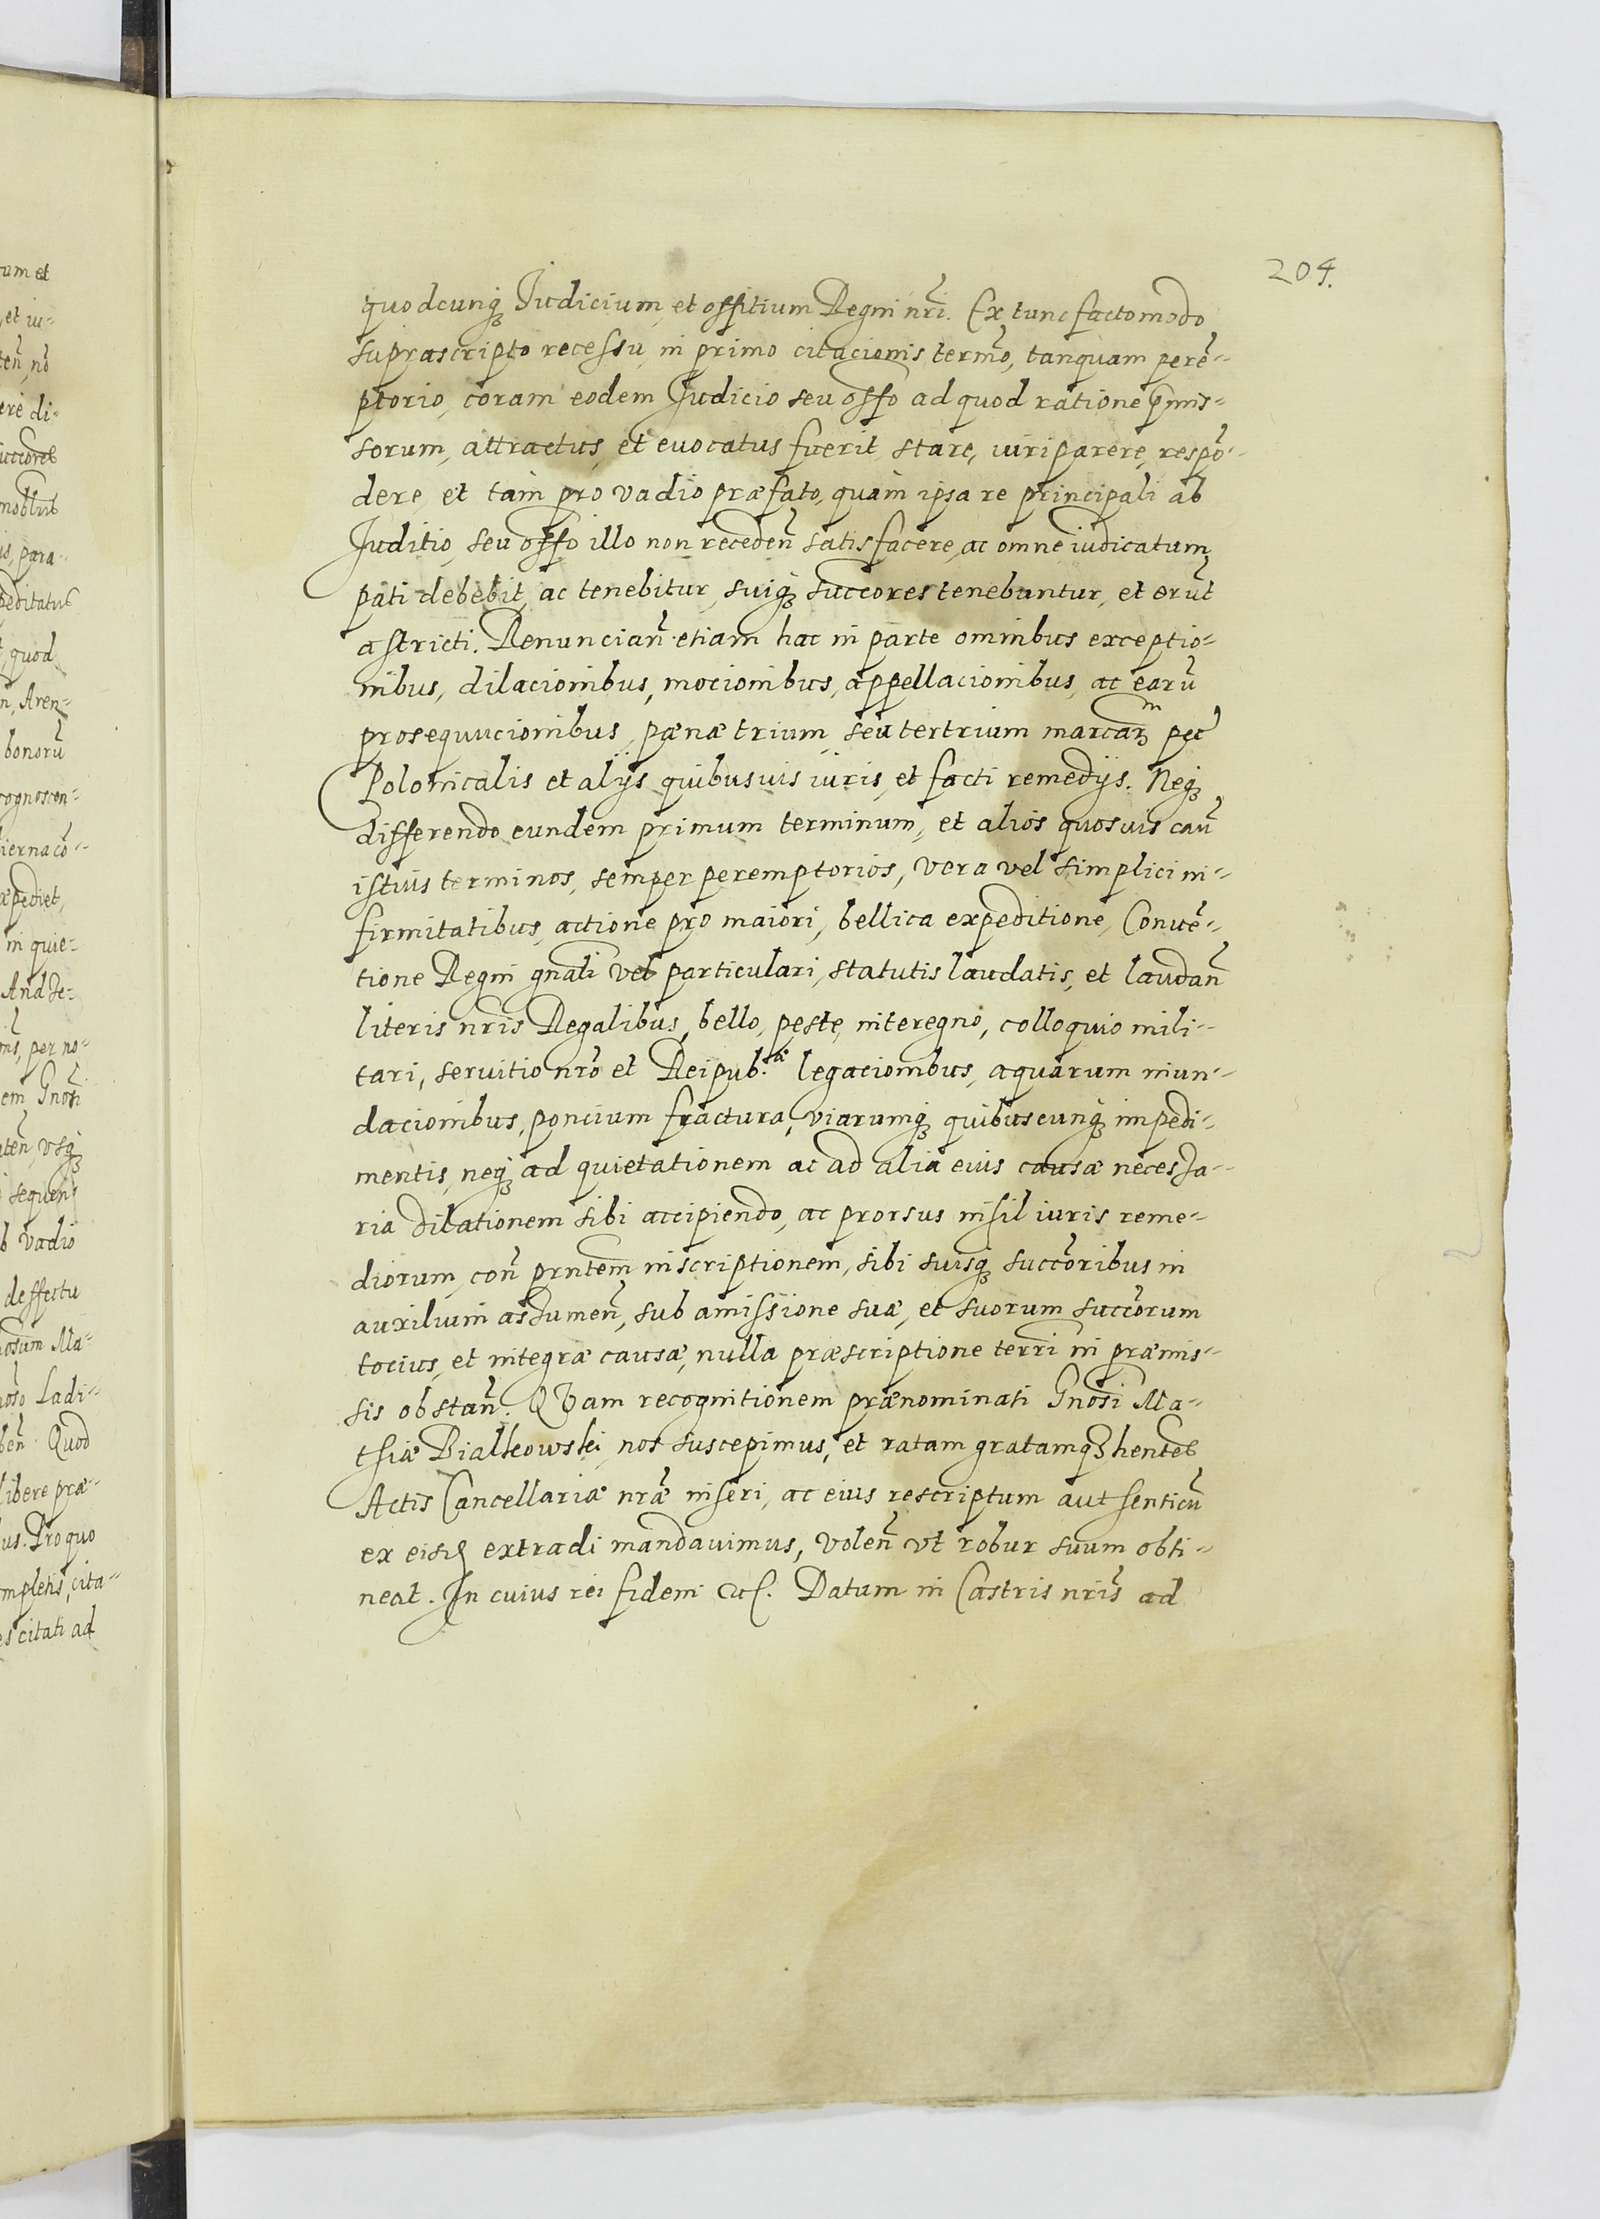 204.
quodcunq₃ Judicium, et offitium Regni nr̃i. Ex tunc facto modo
suprascripto recessu, in primo citacionis termõ, tanquam perẽ-
ptorio, coram eodem Judicio seu offo ad quod ratione p̃mis-
sorum, attractus, et euocatus fuerit, stare, iuri parere, respõ-
dere, et tàm pro vadio præfato, quàm ipsa re principali ab
Juditio, seu offo illo non recedeñ satisfacere, ac omne iudicatum
pati debebit, ac tenebitur, suiq₃ succores tenebuntur, et erũt
astricti. Renunciañ etiam hac in parte omnibus exceptio-
nibus, dilacionibus, mocionibus, appellacionibus, ac earũ
prosequucionibus, pænæ trium, seu ter trium marcaꝝ pec̃
Polonicalis et alijs quibusuis iuris, et facti remedijs. Neq₃
differendo eundem primum terminum, et aliòs quosuis cau͂
istius terminos, semper peremptorios, vera vel simplici in-
firmitatibus, actione pro maiori, bellica expeditione, Conuẽ-
tione Regni gnali vel particulari, statutis laudatis, et laudañ
literis nris Regalibus, bello, peste, interegno, colloquio mili-
tari, seruitio nr̃o et Reipub.æ legacionibus, aquarum inun-
dacionibus, poncium fractura, viarumq₃ quibuscunq₃ impedi-
mentis, neq₃ ad quietationem ac ad alia eius causæ necessa-
ria dilationem sibi accipiendo, ac prorsus nihil iuris reme-
diorum, coñ prntem inscriptionem, sibi suisq₃ succoribus in
auxilium assumeñ, sub amissione suæ, et suorum succorum
tocius, et integræ causæ, nulla præscriptione terri in præmis-
sis obstañ. QVam recognitionem prænominati Gnosi Ma-
thiæ Bialkowski nos suscepimus, et ratam gratamq₃ hentes
Actis Cancellariæ nr̃æ inseri, ac eius rescriptum authenticũ
ex eisd extradi mandauimus, voleñ vt robur suum obti-
neat. In cuius rei fidem etc. Datum in Castris nr̃is ad